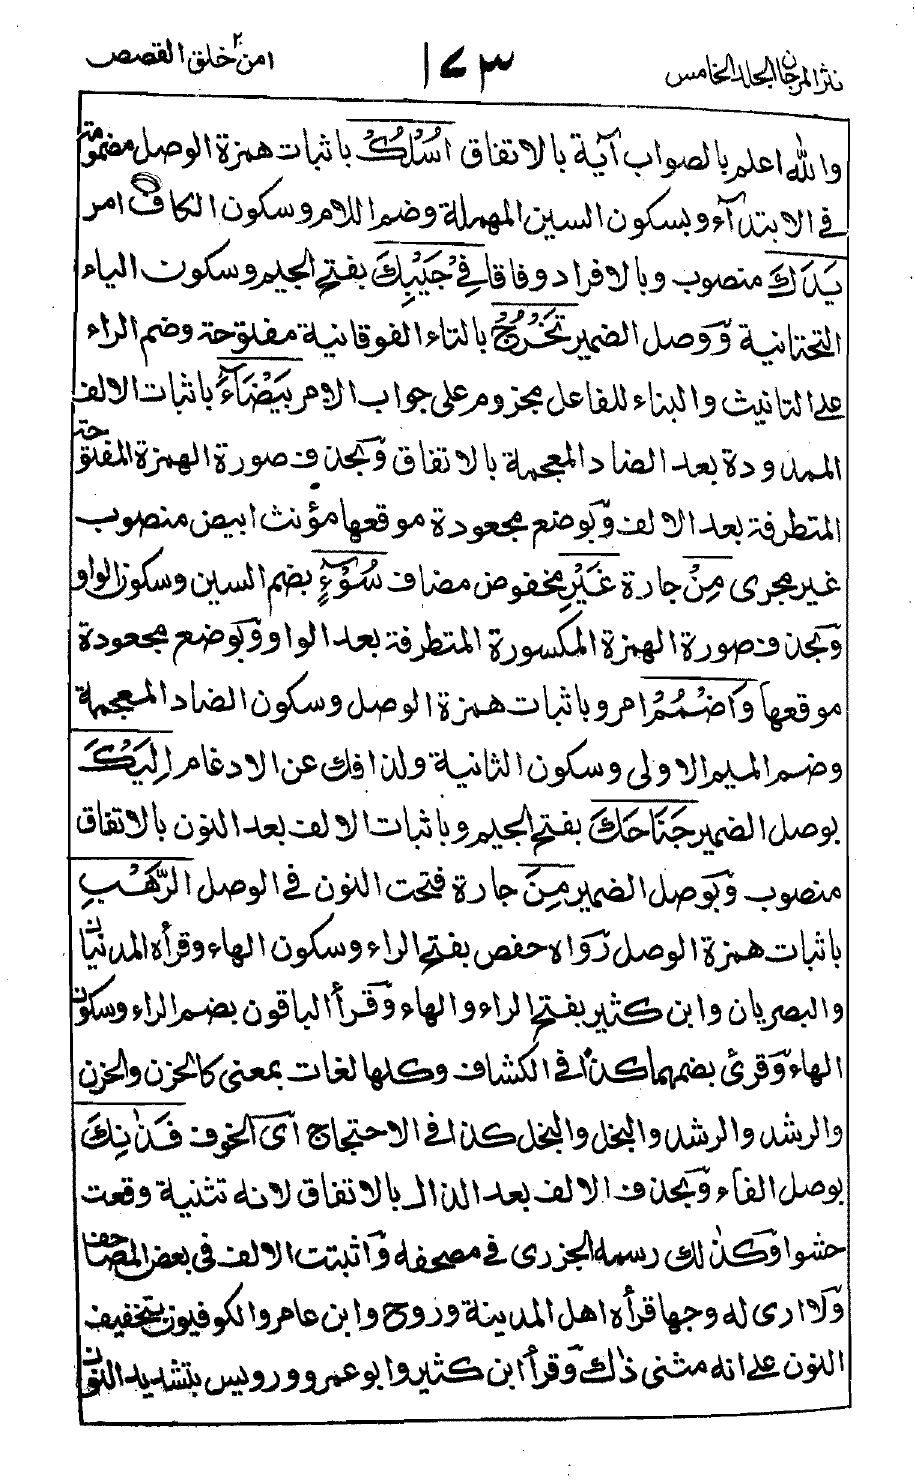 نثر المرجان المجلد الخامس
١٧٣
امن٢ خلق القصص
والله اعلم بالصواب آية بالاتفاق اُسْلُكْ باثبات همزة الوصل مضمومة
فى الابتدآء وبسكون السين المهملة وضم اللام وسكون الكاف امر
يَدَكَ منصوب وبالافراد وفاقا فِىْ جَيْبِكَ بفتح الجيم وسكون الياء
التحتانية ووصل الضمير تَخْرُجْ بالتاء الفوقانية مفتوحة وضم الراء
على التانيث والبناء للفاعل مجزوم على جواب الامر بَيْضَآءَ باثبات الالف
الممدودة بعد الضاد المعجمة بالاتفاق وبحذف صورة الهمزة المفتوحة
المتطرفة بعد الالف وبوضع مجعودة موقعها مؤنث ابيض منصوب
غير مجرى مِنْ جارة غَيْرِ مخفوض مضاف سُوْٓءٍ بضم السين وسكون الواو
وبحذف صورة الهمزة المكسورة المتطرفة بعد الواو وبوضع مجعودة
موقعها وَاضْمُمْ امر وباثبات همزة الوصل وسكون الضاد المعجمة
وضم الميم الاولى وسكون الثانية ولذا فك عن الادغام اِلَيْكَ
بوصل الضمير جَنَاحَكَ بفتح الجيم وباثبات الالف بعد النون بالاتفاق
منصوب وبوصل الضمير مِنَ جارة فتحت النون فى الوصل الرَّهْبِ
باثبات همزة الوصل رواه حفص بفتح الراء وسكون الهاء وقرأه المدنيان
والبصريان وابن كثير بفتح الراء والهاء وقرأ الباقون بضم الراء وسكون
الهاء وقرئ بضمهما كذا فى الكشاف وكلها لغات بمعنى كالحزن والحزن
والرشد والرشد والبخل والبخل كذا فى الاحتجاج اى الخوف فَذٰنِكَ
بوصل الفاء وبحذف الالف بعد الذال بالاتفاق لانه تثنية وقعت
حشوا وكذلك رسمه الجزرى فى مصحفه واثبتت الالف فى بعض المصاحف
ولا ارى له وجها قرأه اهل المدينة وروح وابن عامر والكوفيون بتخفيف
النون على انه مثنى ذلك وقرأ ابن كثير وابو عمرو ورويس بتشديد النون